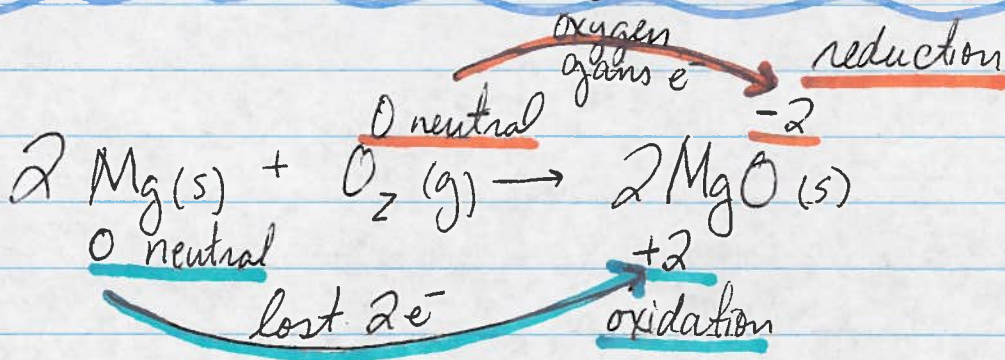 oxygen
gans e⁻
reduction
0 neutral
-2
2 Mg(s) + O₂ (g) → 2MgO (s)
0 neutral
+2
lost 2e⁻
oxidation